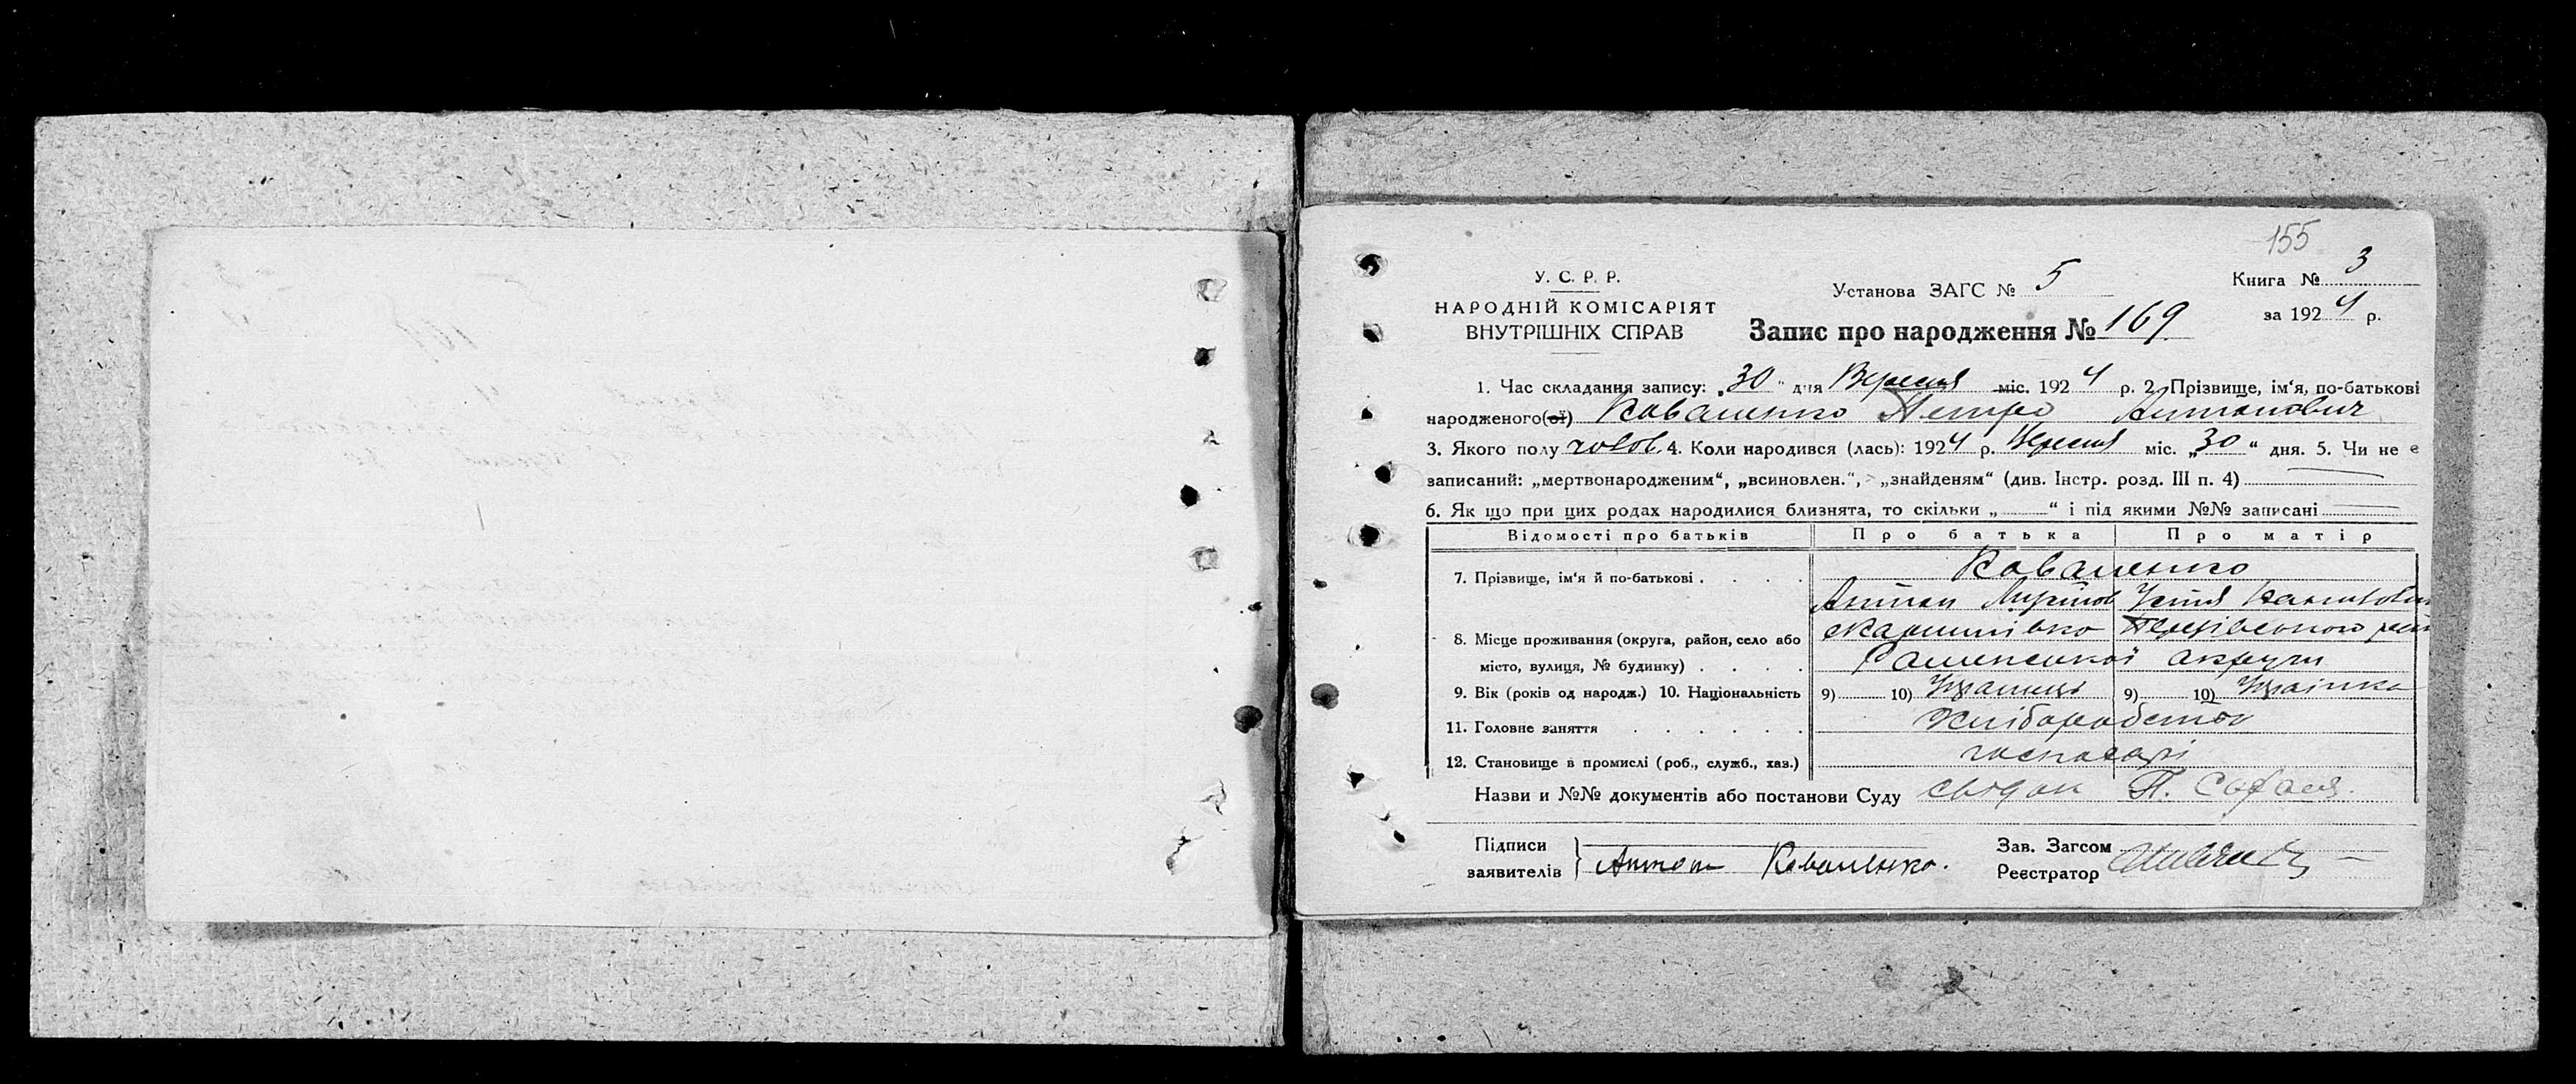 155
У. С. Р. Р.
НАРОДНІЙ КОМІСАРІЯТ
ВНУТРІШНІХ СПРАВ
Установа ЗАГС № 5
Книга № 3
Запис про народження № 169
за 1924 р.
1. Час складання запису: „30" дня Вересня міс. 1924 р. 2. Прізвище, ім'я, по-батькові
народженого(ої) Коваленко Петро Антонович
3. Якого полу чолов. 4. Коли народився (лась): 1924 р. Вересня міс. „30" дня. 5. Чи не є
записаний: „мертвонародженим", „всиновлен.", „знайденям" (див. Інстр. розд. III п. 4)
6. Як що при цих родах народилися близнята, то скільки „ " і під якими №№ записані
Відомості про батьків Про батька Про матір
7. Прізвище, ім'я й по-батькові Коваленко
Антон Устя
8. Місце проживання (округа, район, село або
місто, вулиця, № будинку) Роменської округи
9. Вік (років од народж.) 10. Національність 9) 10) Українці 9) 10) Українка
11. Головне заняття Хліборобство
12. Становище в промислі (роб., служб., хаз.) господарі
Назви и №№ документів або постанови Суду П.
Підписи
заявителів Антон Коваленко.
Зав. Загсом
Реєстратор